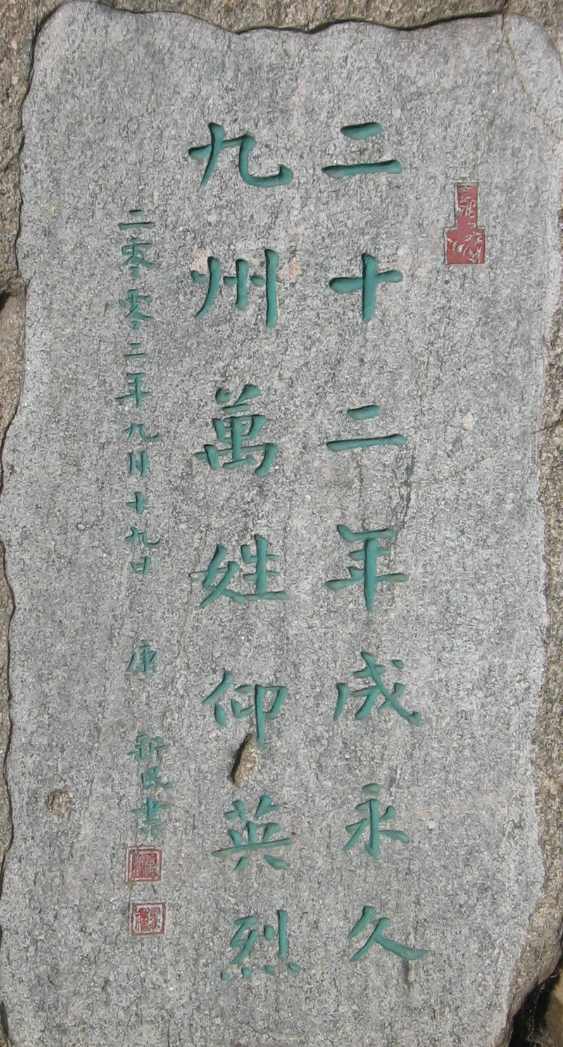 二十二年成永久
九州萬姓仰英烈
二零零二年九月十九日 康 新民書